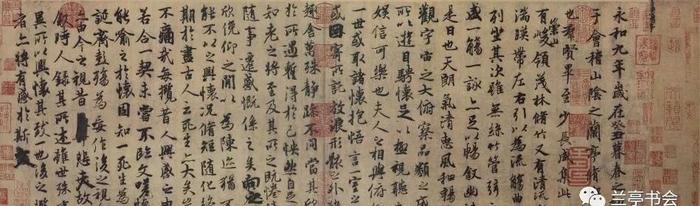 永和九年歲在癸丑暮春
于會稽山陰之蘭亭脩
也羣賢畢至少長咸集此
有崇山峻領茂林脩竹又有清流
湍暎帶左右引以為流觴曲
列坐其次雖無絲竹管弦
盛一觴一詠亦足以暢叙幽
是日也天朗氣清惠風和暢
觀宇宙之大俯察品類之盛
所以遊目騁懷足以極視聽
娛信可樂也夫人之相與俯
一世或取諸懷抱悟言一室之
或因寄所託放浪形骸之外
趣舍萬殊靜躁不同當其欣
於所遇暫得於己怏然自
知老之將至及其所之既惓
隨事遷感慨係之矣向之
欣俛仰之間以為陳迹猶不
能不以之興懷況脩短隨化
期於盡古人云死生亦大矣
不痛哉每攬昔人興感之由
若合一契未嘗不臨文嗟
能喻之於懷固知一死生為
誕齊彭殤為妄作後之視
亦由今之視昔悲夫故
叙時人錄其所述雖世殊
異所以興懷其致一也後之攬
者亦將有感於斯文
兰亭书会